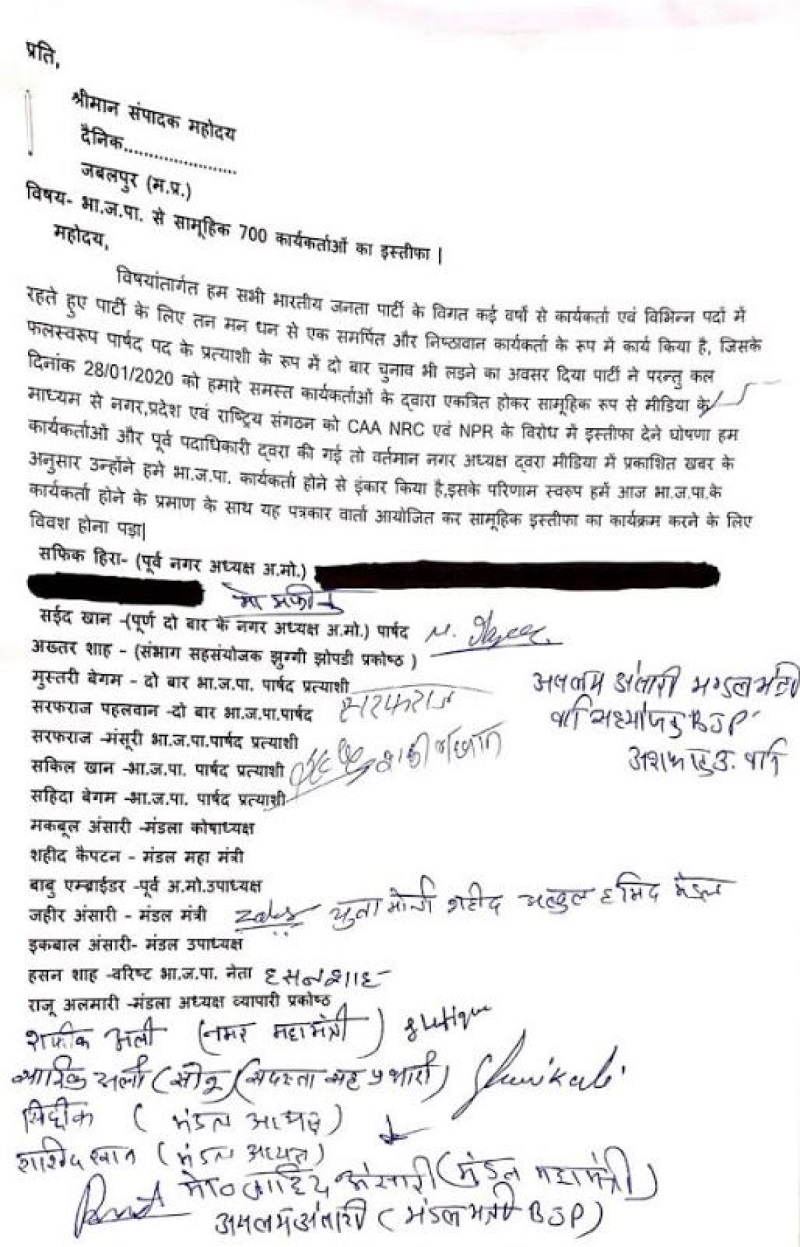 प्रति,
श्रीमान संपादक महोदय
दैनिक......................
जबलपुर (म.प्र.)
विषय- भा.ज.पा. से सामूहिक 700 कार्यकर्ताओं का इस्तीफा |
महोदय,
विषयांतार्गत हम सभी भारतीय जनता पार्टी के विगत कई वर्षो से कार्यकर्ता एवं विभिन्न पदों में
रहते हुए पार्टी के लिए तन मन धन से एक समर्पित और निष्ठावान कार्यकर्ता के रूप में कार्य किया है, जिसके
फलस्वरूप पार्षद पद के प्रत्याशी के रूप में दो बार चुनाव भी लड़ने का अवसर दिया पार्टी ने परन्तु कल
दिनांक 28/01/2020 को हमारे समस्त कार्यकर्ताओं के द्वारा एकत्रित होकर सामूहिक रूप से मीडिया के
माध्यम से नगर,प्रदेश एवं राष्ट्रिय संगठन को CAA NRC एवं NPR के विरोध में इस्तीफा देने घोषणा हम
कार्यकर्ताओं और पूर्व पदाधिकारी द्वरा की गई तो वर्तमान नगर अध्यक्ष द्वरा मीडिया में प्रकाशित खबर के
अनुसार उन्होंने हमे भा.ज.पा. कार्यकर्ता होने से इंकार किया है,इसके परिणाम स्वरुप हमें आज भा.ज.पा.के
कार्यकर्ता होने के प्रमाण के साथ यह पत्रकार वार्ता आयोजित कर सामूहिक इस्तीफा का कार्यक्रम करने के लिए
विवश होना पड़ा|
सफिक हिरा- (पूर्व नगर अध्यक्ष अ.मो.)
सईद खान -(पूर्ण दो बार के नगर अध्यक्ष अ.मो.) पार्षद
अख्तर शाह - (संभाग सहसंयोजक झुग्गी झोपडी प्रकोष्ठ )
मुस्तरी बेगम - दो बार भा.ज.पा. पार्षद प्रत्याशी
सरफराज पहलवान -दो बार भा.ज.पा.पार्षद सरफराज
असलम अंसारी मण्डल मंत्री
BJP
सरफराज -मंसूरी भा.ज.पा.पार्षद प्रत्याशी
सकिल खान -भा.ज.पा. पार्षद प्रत्याशी
सहिदा बेगम -भा.ज.पा. पार्षद प्रत्याशी
मकबूल अंसारी -मंडला कोषाध्यक्ष
शहीद कैपटन - मंडल महा मंत्री
बाबु एम्ब्राईडर -पूर्व अ.मो.उपाध्यक्ष
जहीर अंसारी - मंडल मंत्री युवा मोर्चा शहीद अब्दुल हमिद मंडल
इकबाल अंसारी- मंडल उपाध्यक्ष
हसन शाह -वरिष्ट भा.ज.पा. नेता हसन शाह
राजू अलमारी -मंडला अध्यक्ष व्यापारी प्रकोष्ठ
शफीक अली (नगर महामंत्री)
अली (सोनू) (सदस्ता सह प्रभारी)
सिद्दीक ( मंडल अध्यक्ष )
खान ( मंडल अध्यक्ष )
मो० अंसारी (मंडल महामंत्री)
असलम अंसारी ( मंडल मंत्री BJP)